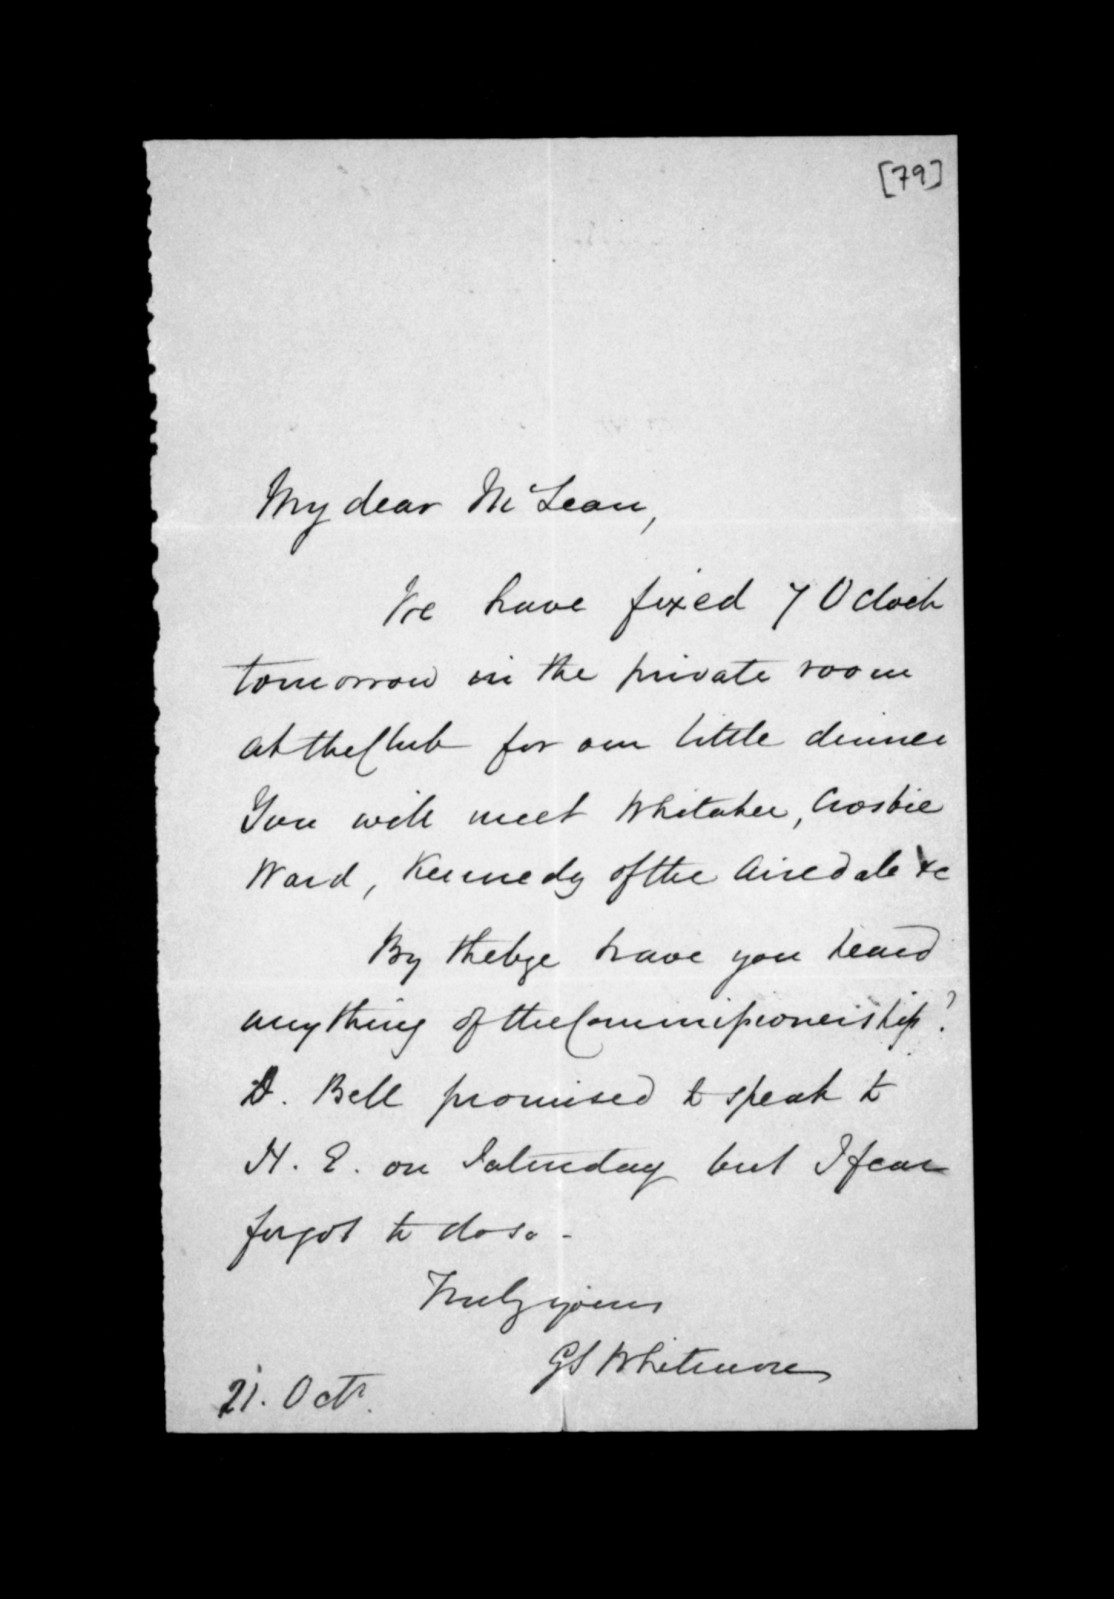 [79]
My dear McLean,
We have fixed 7 O Clock
tomorrow in the private room
at the Club for our little dinner
You will meet Whitaker, Crosbie
Ward, Kennedy of the Airedale &c
By the bye have you heard
anything of the Commissionership?
D. Bell promised to speak to
H. E. on Saturday but I fear
forgot to do so -
Truly yours
GS Whitmore
21. Octr.